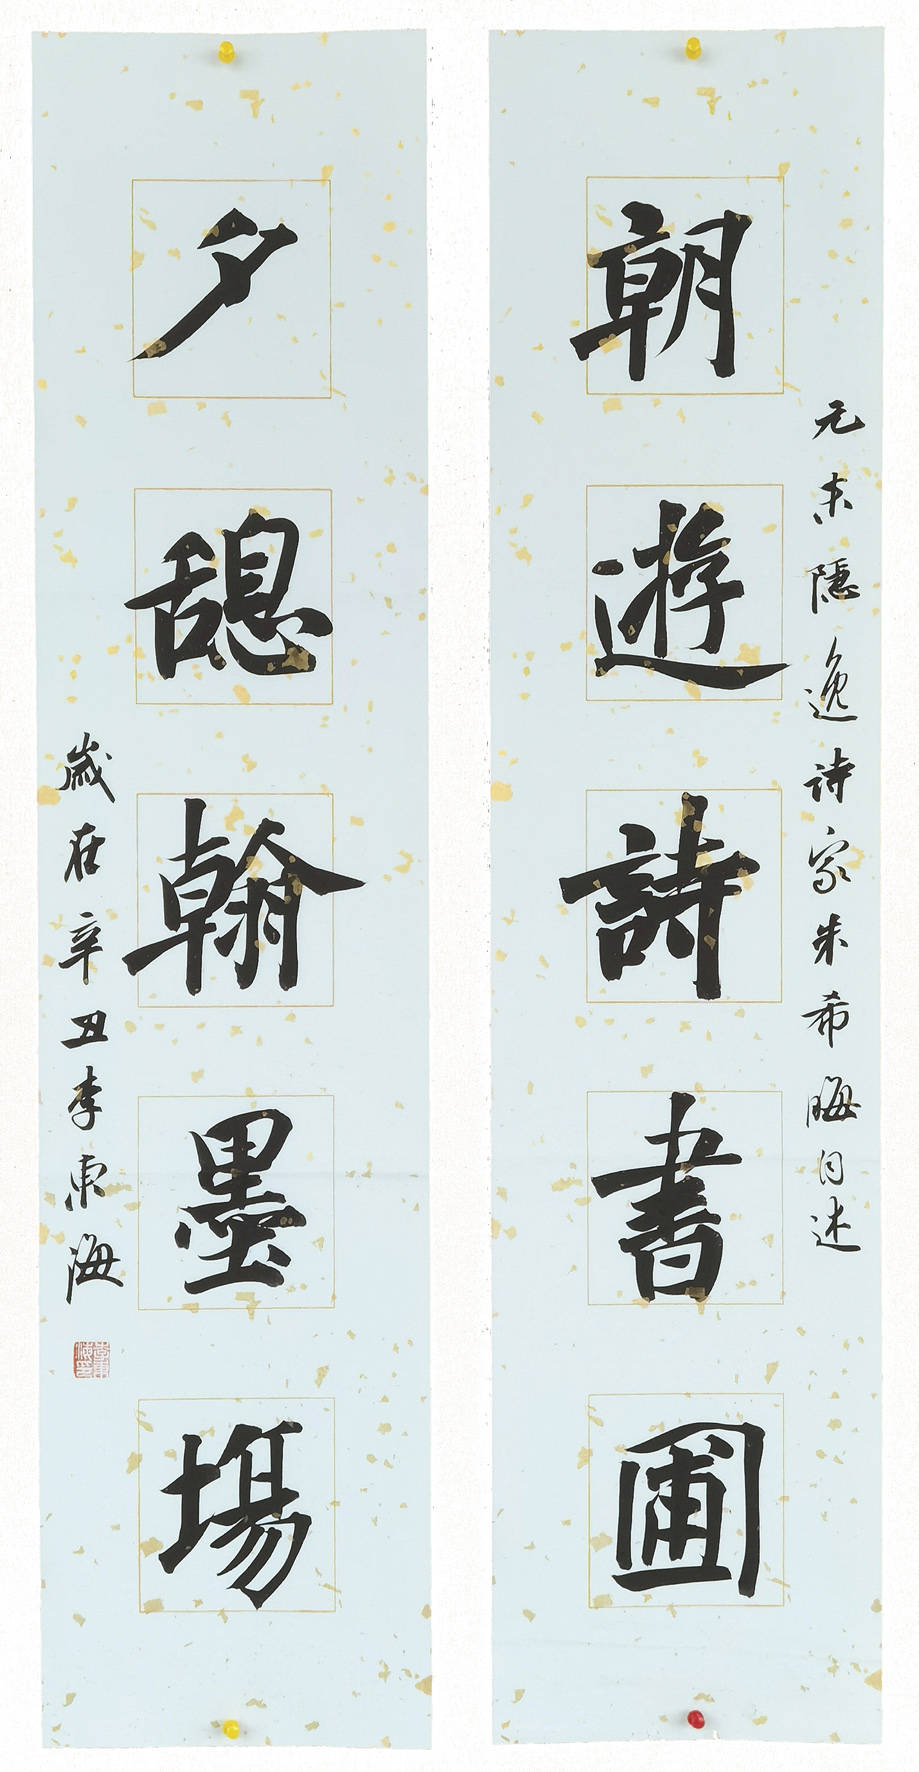 元末隱逸诗家朱希晦自述
朝遊詩書圃
夕憩翰墨場
歲在辛丑李東海